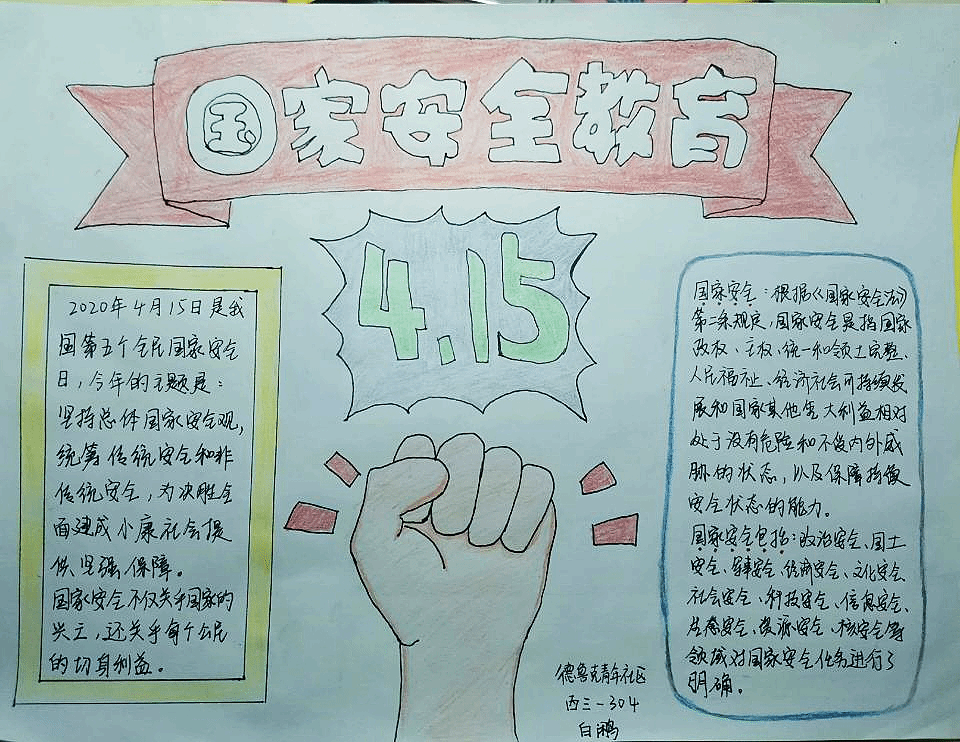 国家安全教育
4.15
2020年4月15日是我
国第五个全民国家安全
日，今年的主题是：
坚持总体国家安全观，
统筹传统安全和非
传统安全，为决胜全
面建成小康社会提
供坚强保障。
国家安全不仅关乎国家的
兴亡，还关乎每个公民
的切身利益。
国家安全：根据《国家安全法》
第二条规定，国家安全是指国家
政权、主权、统一和领土完整、
人民福祉、经济社会可持续发
展和国家其他重大利益相对
处于没有危险和不受内外威
胁的状态，以及保障持续
安全状态的能力。
国家安全包括：政治安全、国土
安全、军事安全、经济安全、文化安全、
社会安全、科技安全、信息安全、
生态安全、资源安全、核安全等
领域对国家安全任务进行了
明确。
德鲁克青年社区
西三-304
白鸿